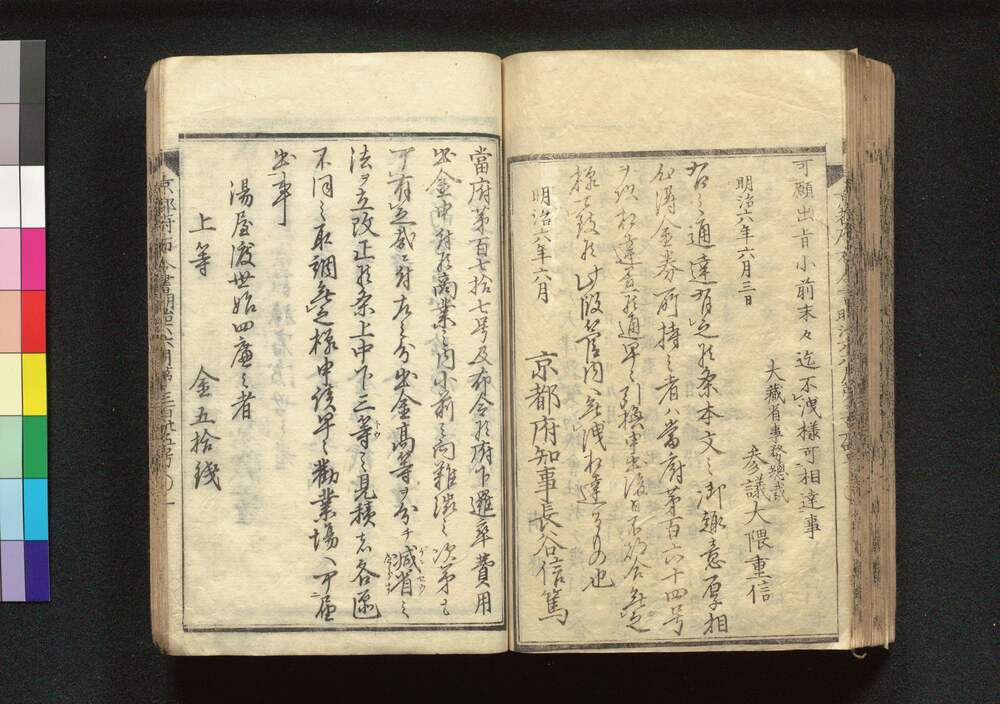 可願出旨小前末々迄不洩様可相達事
明治六年六月三日
大藏省事務總裁
参議大隈重信
右之通達有之候条本文之御趣意厚相
心得金券所持之者ハ當府第百六十四号
ヲ以相達置候通早々引換申出後日不都合無之
様可致候此段管内無洩相達するもの也
明治六年六月
京都府知事長谷信篤
當府第百七拾七号及布令候府下邏卒費用
出金申付候商業之内小前之向難澁之次第も
可有之哉ニ付右之分出金高等ヲ分チ減省之
法ヲ立改正候条上中下三等之見積各區
不同之取調無之様申談早々勸業場ヘ可届
出事
湯屋渡世始四廉之者
上等
金五拾銭